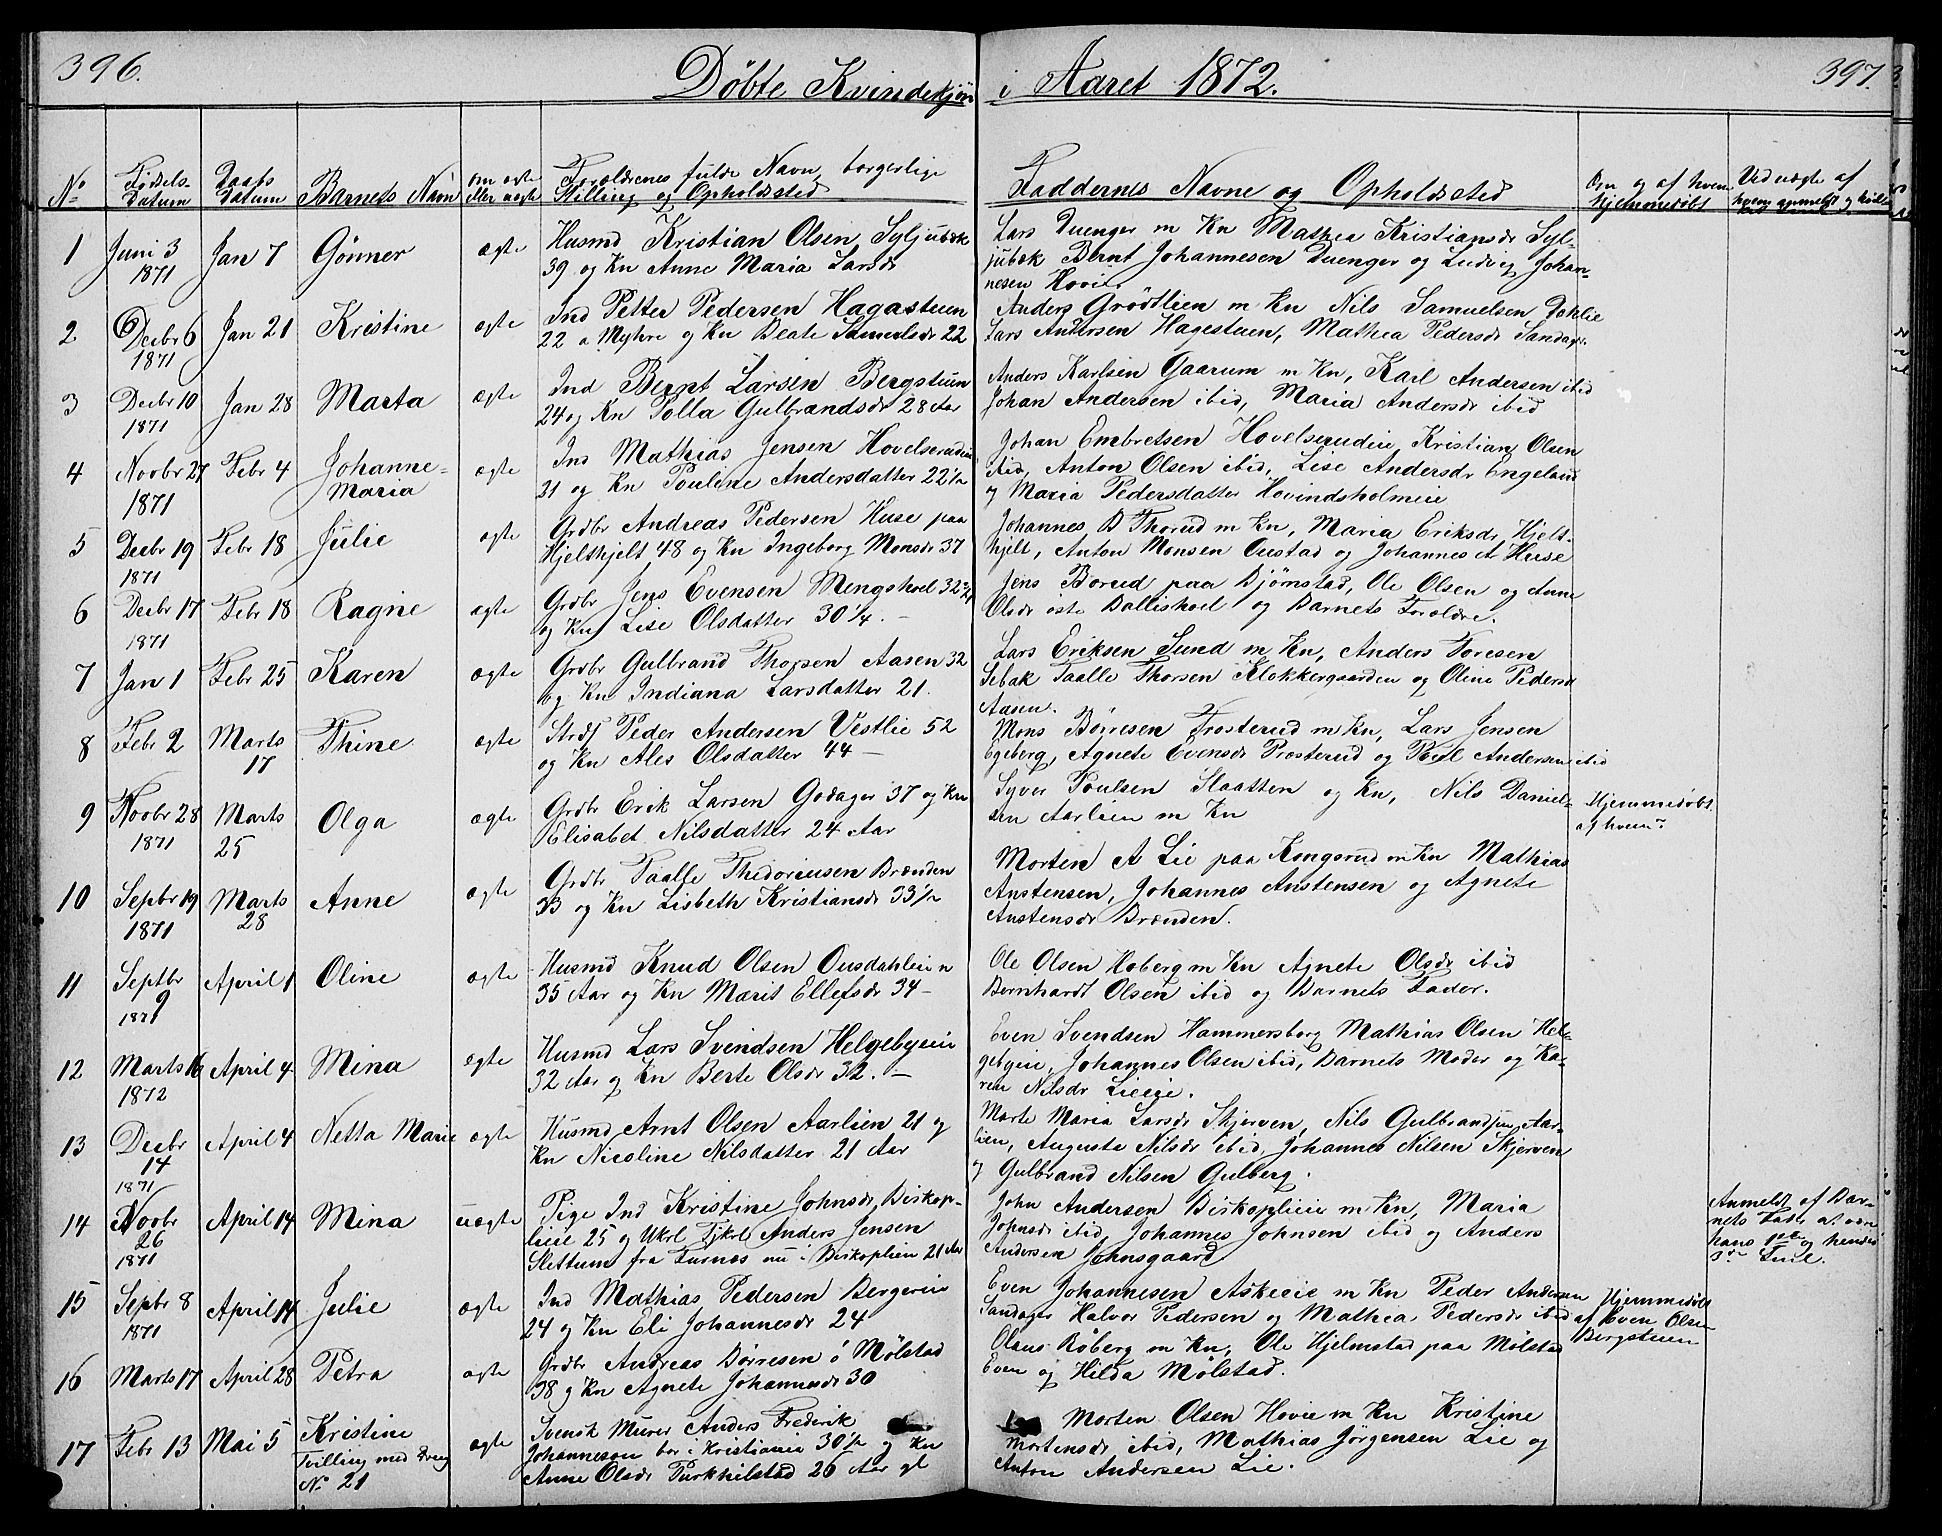 396.
Døbte Kvindekjøn i Aaret 1872.
397.
No
Fødsels-
Datum
Daabs
Datum
Barnets Navn
om ægte
eller uægte
Forældrenes fulde Navn, borgerlige
Stilling og Opholdssted
Faddernes Navne og Opholdssted
Om og af hvem
hjemmedøbt
Ved uægte af
hvem anmeldt
1 Juni 3 1871 Jan 7 Gønner ægte
Husmd Kristian Olsen Syljubæk
39 og Kn Anne Maria Larsdr
Lars Duenger m Kn Mathea Kristiansdr Syl-
jubæk Bernt Johannesen Duenger og Ludvig Johan-
nesen Hovie
2 Decbr 6 1871 Jan 21 Kristine ægte
Ind Petter Pedersen Hagastuen
22 a Myhre og Kn Beate Samuelsdr 22
Anders Grødtlien m Kn Nils Samuelsen Dahlie
Lars Andersen Hagestuen, Mathea Pedersdr Sandager
3 Decbr 10 1871 Jan 28 Marta ægte
Ind Bernt Larsen Bergstuen
24 og Kn Polla Gulbrandsdr 28 Aar
Anders Karlsen Gaarum m Kn, Karl Andersen ibid
Johan Andersen ibid, Maria Andersdr ibid
4 Novbr 27 1871 Febr 4 Johanne-
Maria ægte
Ind Mathias Jensen Hovelserudeie
21 og Kn Pouline Andersdatter 22½
Johan Embretsen Hovelserudeie, Kristian Olsen
ibid, Anton Olsen ibid, Lise Andersdr Engelund
og Maria Pedersdatter Hovindsholmeie
5 Decbr 19 1871 Febr 18 Julie ægte
Grdbr Andreas Pedersen Huse paa
Hjelthjelt 48 og Kn Ingeborg Monsdr 37
Johannes B Thorud m Kn, Maria Eriksdr Hjelt-
hjelt, Anton Monsen Oustad og Johannes A Huse
6 Decbr 17 1871 Febr 18 Ragne ægte
Grdbr Jens Evensen Mengshoel 32¾
og Kn Lise Olsdatter 30¼.
Jens Borud paa Bjørnstad, Ole Olsen og Anne
Olsdr øste Ballishoel og Barnets Forældre.
7 Jan 1 Febr 25 Karen ægte
Grdbr Gulbrand Thorsen Aasen 32
og Kn Indiana Larsdatter 21.
Lars Eriksen Sund m Kn, Anders Toresen
Sebak Paalle Thorsen Klokkergaarden og Oline Pedersdr
Aasen.
8 Febr 2 Marts 17 Thine ægte
Strdf Peder Andersen Vestlie 52
og Kn Ales Olsdatter 44 —
Mons Børresen Frosterud m Kn, Lars Jensen
Egeberg, Agnete Evensdr Prosterud og Poul Andersen ibid
9 Novbr 28 1871 Marts 25 Olga ægte
Grdbr Erik Larsen Godager 37 og Kn
Elisabet Nilsdatter 24 Aar
Syver Poulsen Slaatten og Kn, Nils Daniel-
sen Aarlien m Kn
Hjemmedøbt
af hvem?
10 Septbr 19 1871 Marts 28 Anne ægte
Grdbr Paalle Thedoriusen Brænden
33 og Kn Lisbeth Kristiansdr 33½
Morten A Lie paa Kongsrud m Kn Mathias
Anstensen, Johannes Anstensen og Agnete
Austensdr Brænden.
11 Septbr 9 1871 April 1 Oline ægte
Husmd Knud Olsen Ousdahleien
35 Aar og Kn Marit Ellefsdr 34 —
Ole Olsen Hoberg m Kn Agnete Olsdr ibid
Bernhardt Olsen ibid og Barnets Fader.
12 Marts 16 1872 April 4 Mina ægte
Husmd Lars Svendsen Helgebyeie
32 Aar og Kn Berte Olsdr 32. —
Even Svendsen Hammersborg Mathias Olsen Hel-
gebyeie, Johannes Olsen ibid, Barnets Moder og Ka-
ren Nilsdr Lieeie.
13 Decbr 14 1871 April 4 Netta Marie ægte
Husmd Arnt Olsen Aarlien 21 og
Kn Nicoline Nilsdatter 21 Aar
Marte Maria Larsdr Skjerven, Nils Gulbrandsen Aar-
lien, Augusta Nilsdr ibid, Johannes Nilsen Skjerven
og Gulbrand Nilsen Gulberg.
14 Novbr 26 1871 April 14 Mina uægte
Pige Ind Kristine Johnsdr Biskop-
lieie 25 og Ukrl Tjkrl Anders Jensen
Slettum fra Furnæs nu i Biskoplien 21 Aar
John Andersen Biskoplieie m Kn, Maria
Johnsdr ibid, Johannes Johnsen ibid og Anders
Andersen Johnsgaard
Anmeldt af Bar-
nets Fader at være
hans 1ste og hendes
3die Feil.
15 Septbr 8 1871 April 14 Julie ægte
Ind Mathias Pedersen Bergereie
24 og Kn Eli Johannesdr 24
Even Johannesen Askeeie m Kn Peder Andersen
Sandager Halvor Pedersen og Mathea Pedersdr ibid
Hjemmedøbt
af Even Olsen
Bergstuen
16 Marts 17 April 28 Petra ægte
Grdbr Andreas Børresen ó Mølstad
38 og Kn Agnete Johannesdr 30
Olaus Røberg m Kn, Ole Hjelmstad paa Mølstad
Even og Hilda Mølstad.
17 Febr 13 Mai 5 Kristine
Tvilling med Dreng
No 21 ægte
Svensk Murer Anders Frederik
Johanneson bor i Kristiania 30½ og Kn
Anne Olsdr Turkhilstad 26 Aar gl
Morten Olsen Hovie m Kn Kristine
Mortensdr ibid, Mathias Jørgensen Lie og
Anton Andersen Lie.